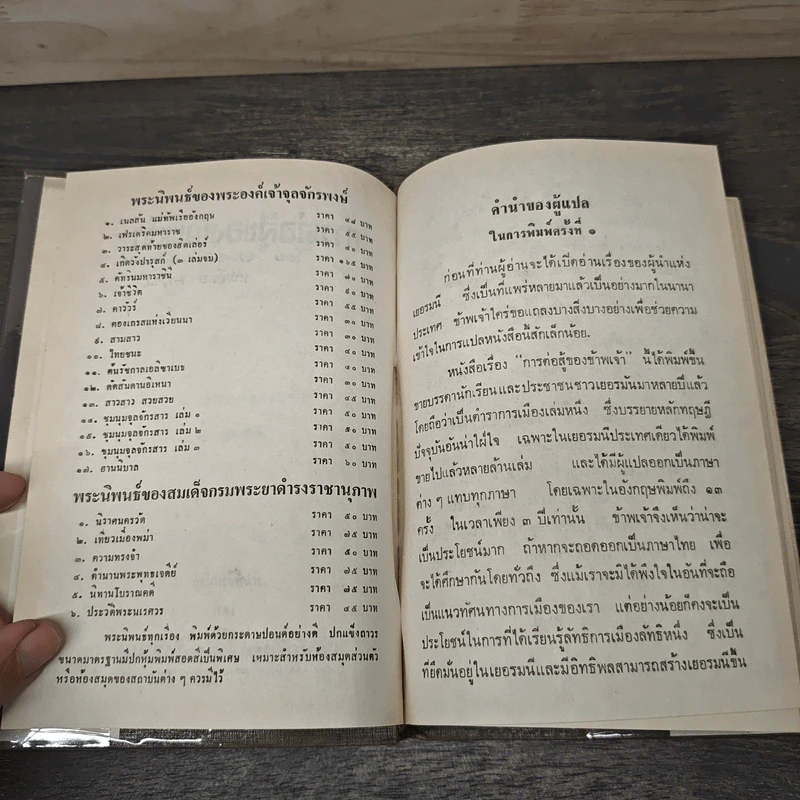 พระนิพนธ์ของพระองค์เจ้าจุลจักรพงษ์
๑. เนลสัน แม่ทัพเรืออังกฤษ ราคา ๔๘ บาท
๒. เฟรเดริคมหาราช ราคา ๕๕ บาท
๓. วาระสุดท้ายของฮิตเล่อร์ ราคา ๔๐ บาท
๔. เกิดวังปารุสก์ (๓ เล่มจบ) ราคา ๑๖๕ บาท
๕. คัทรินมหาราชินี ราคา ๗๐ บาท
๖. เจ้าชีวิต ราคา ๙๐ บาท
๗. คาวัวร์ ราคา ๕๕ บาท
๘. คองเกรสแห่งเวียนนา ราคา ๓๐ บาท
๙. สามสาว ราคา ๓๐ บาท
๑๐. ไทยชนะ ราคา ๔๐ บาท
๑๑. ต้นรัชกาลเอลิซาเบธ ราคา ๔๐ บาท
๑๒. ดัดสันดานอิเหนา ราคา ๓๐ บาท
๑๓. สาวสาง สวยสวย ราคา ๔๐ บาท
๑๔. ชุมนุมจุลจักรสาร เล่ม ๑ ราคา ๕๐ บาท
๑๕. ชุมนุมจุลจักรสาร เล่ม ๒ ราคา ๕๐ บาท
๑๖. ชุมนุมจุลจักรสาร เล่ม ๓ ราคา ๕๐ บาท
๑๗. ฮานนิบาล ราคา ๖๐ บาท
พระนิพนธ์ของสมเด็จกรมพระยาดำรงราชานุภาพ
๑. นิราศนครวัด ราคา ๕๐ บาท
๒. เที่ยวเมืองพม่า ราคา ๗๕ บาท
๓. ความทรงจำ ราคา ๕๐ บาท
๔. ตำนานพระพุทธเจดีย์ ราคา ๗๕ บาท
๕. นิทานโบราณคดี ราคา ๗๕ บาท
๖. ประวัติพระนเรศวร ราคา ๔๕ บาท
พระนิพนธ์ทุกเรื่อง พิมพ์ด้วยกระดาษปอนด์อย่างดี ปกแข็งถาวร
ขนาดมาตรฐานมีปกหุ้มพิมพ์สอดสีเป็นพิเศษ เหมาะสำหรับห้องสมุดส่วนตัว
หรือห้องสมุดของสถาบันต่าง ๆ ควรมีไว้
คำนำของผู้แปล
ในการพิมพ์ครั้งที่ ๑
ก่อนที่ท่านผู้อ่านจะได้เปิดอ่านเรื่องของผู้นำแห่ง
เยอรมนี ซึ่งเป็นที่แพร่หลายมาแล้วเป็นอย่างมากในนานา
ประเทศ ข้าพเจ้าใคร่ขอแถลงบางสิ่งบางอย่างเพื่อช่วยความ
เข้าใจในการแปลหนังสือนี้สักเล็กน้อย.
หนังสือเรื่อง “การต่อสู้ของข้าพเจ้า” นี้ได้พิมพ์ขึ้น
ขายบรรดานักเรียนและประชาชนชาวเยอรมันมาหลายปีแล้ว
โดยถือว่าเป็นตำราการเมืองเล่มหนึ่ง ซึ่งบรรยายหลักทฤษฎี
ปัจจุบันอันน่าใฝ่ใจ เฉพาะในเยอรมนีประเทศเดียวได้พิมพ์
ขายไปแล้วหลายล้านเล่ม และได้มีผู้แปลออกเป็นภาษา
ต่าง ๆ แทบทุกภาษา โดยเฉพาะในอังกฤษพิมพ์ถึง ๑๓
ครั้ง ในเวลาเพียง ๓ ปีเท่านั้น ข้าพเจ้าจึงเห็นว่าน่าจะ
เป็นประโยชน์มาก ถ้าหากจะถอดออกเป็นภาษาไทย เพื่อ
จะได้ศึกษากันโดยทั่วถึง ซึ่งแม้เราจะมิได้พึงใจในอันที่จะถือ
เป็นแนวทัศนทางการเมืองของเรา แต่อย่างน้อยก็คงจะเป็น
ประโยชน์ในการที่ได้เรียนรู้ลัทธิการเมืองลัทธิหนึ่ง ซึ่งเป็น
ที่ยึดมั่นอยู่ในเยอรมนีและมีอิทธิพลสามารถสร้างเยอรมนีขึ้น